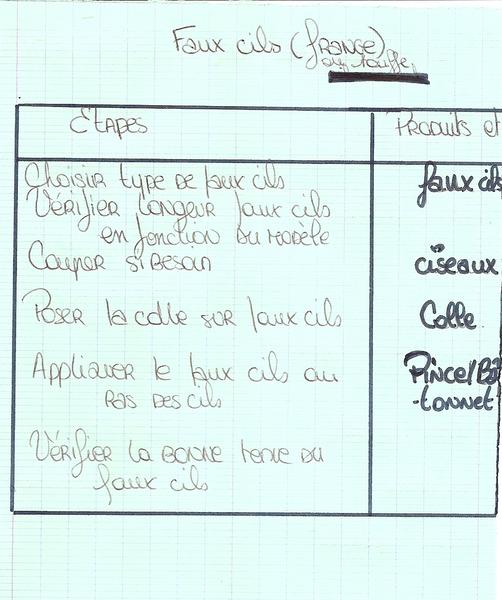 Faux cils (frange)
ou touffe
Etapes
Produits et
Choisir type de faux cils
faux cils
Vérifier longeur faux cils
en fonction du modèle
Couper si besoin
ciseaux
Poser la colle sur faux cils
Colle
Appliquer le faux cils au
Pince/Bâ
ras des cils
-tonnet
Vérifier la bonne tenue du
faux cils